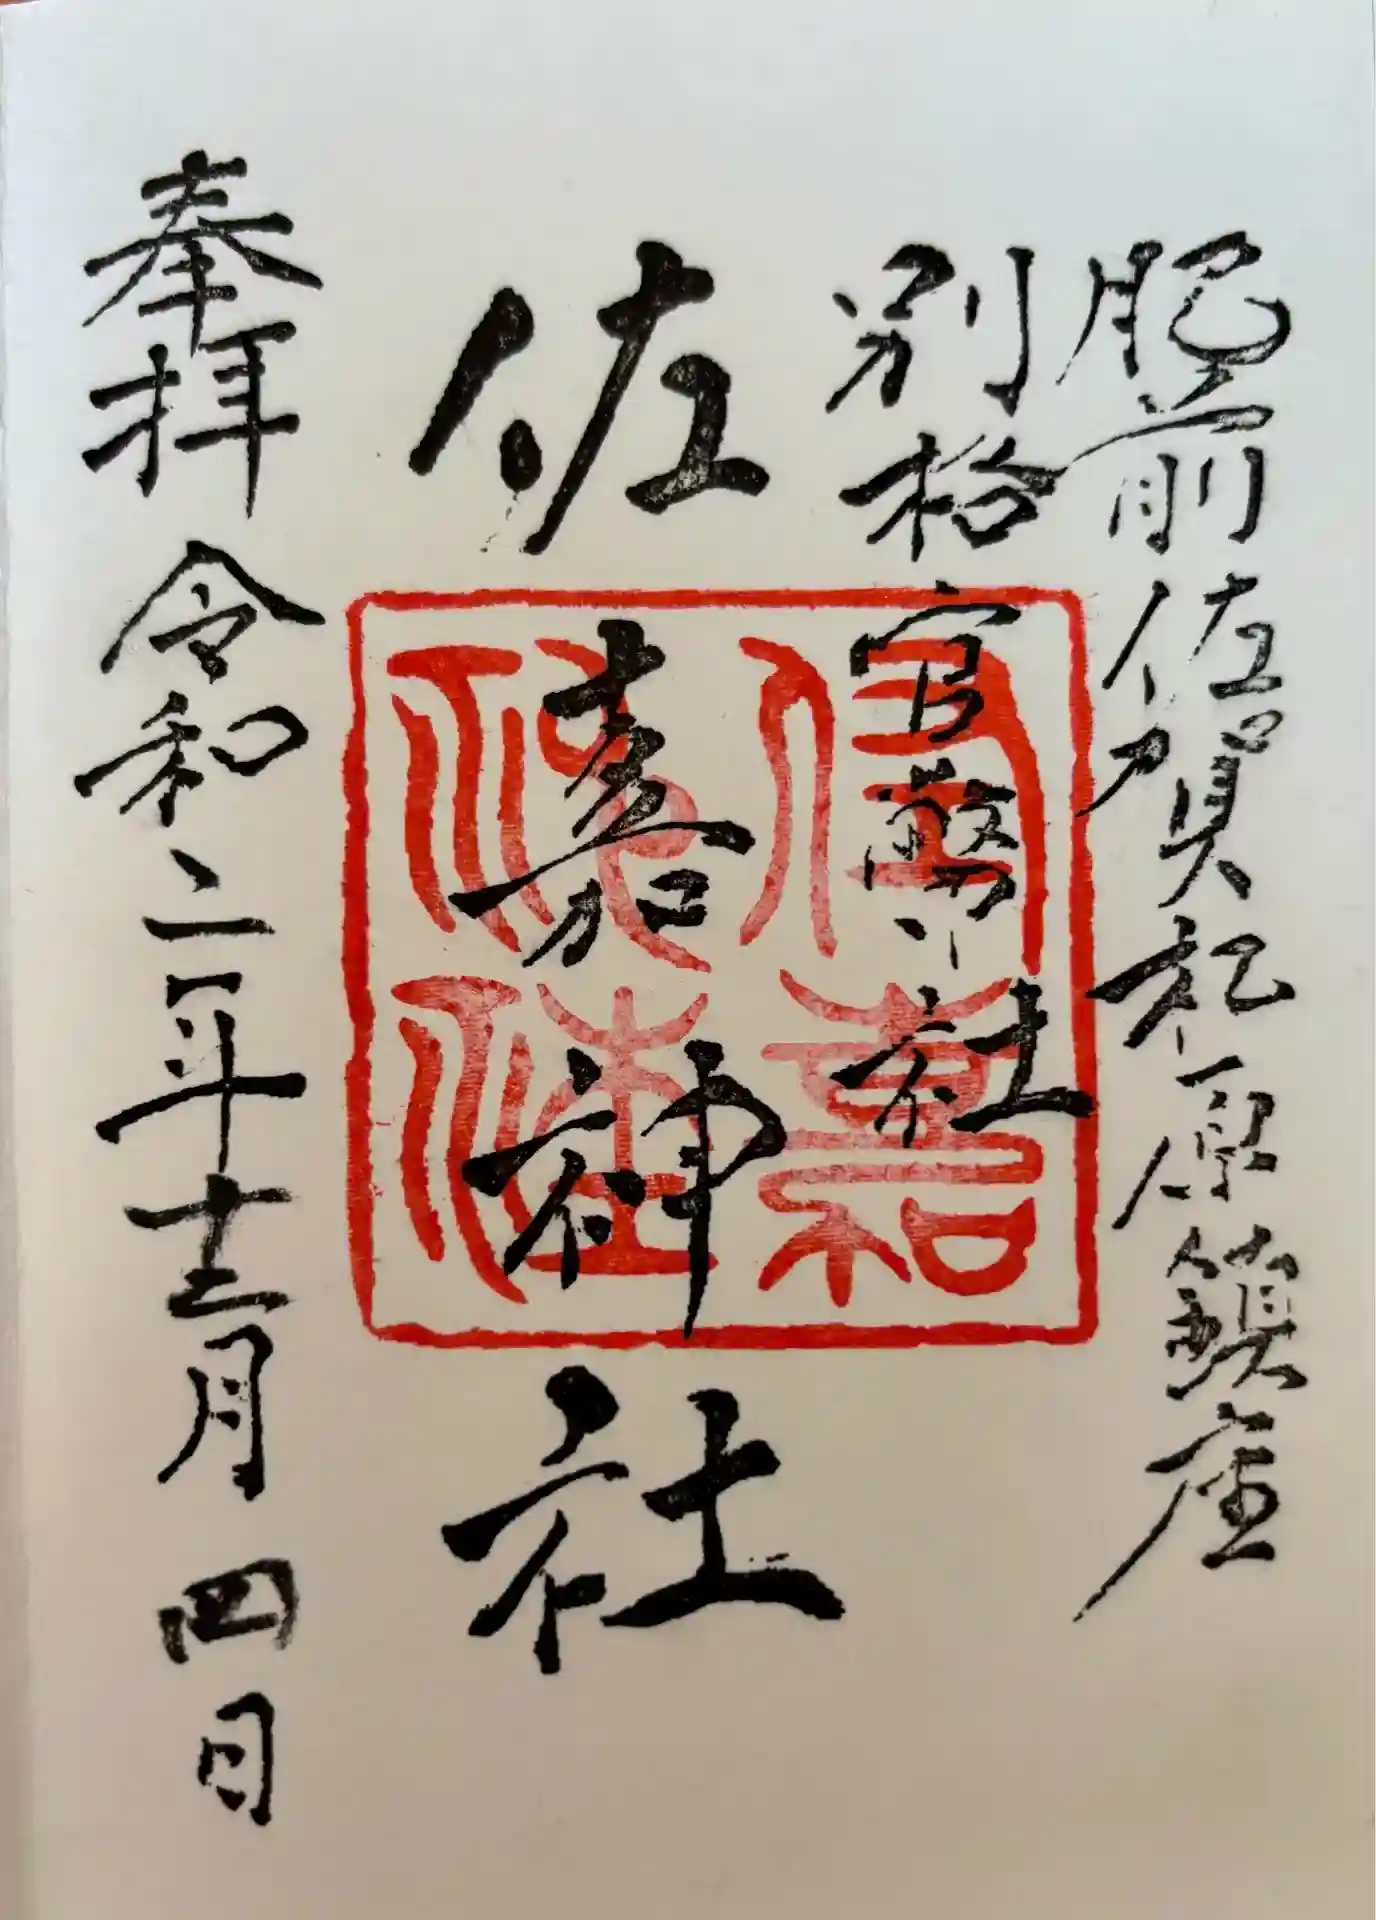 肥前佐賀松原鎮座
別格官幣社
佐嘉神社
佐嘉神社
奉拝 令和二年十二月四日